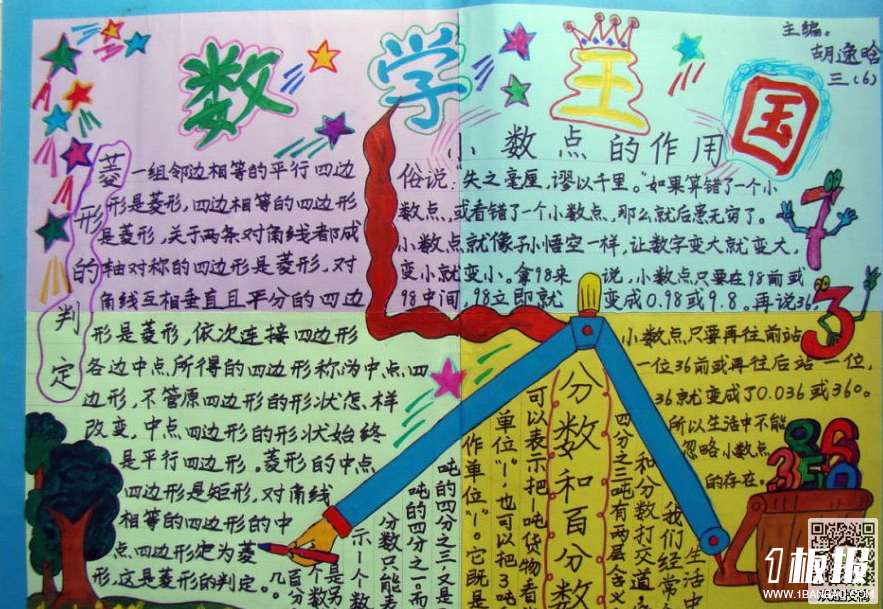 数学王国
主编:
胡逸晗
三(6)
菱形的判定
一组邻边相等的平行四边
形是菱形,四边相等的四边形
是菱形,关于两条对角线都成
轴对称的四边形是菱形,对
角线互相垂直且平分的四边
形是菱形,依次连接四边形
各边中点所得的四边形称为中点四
边形,不管原四边形的形状怎样
改变,中点四边形的形状始终
是平行四边形。菱形的中点
四边形是矩形,对角线
相等的四边形的中
点四边形定为菱
形,这是菱形的判定。
小数点的作用
俗说:“失之毫厘,谬以千里。”如果算错了一个小
数点,或看错了一个小数点,那么就后患无穷了。
小数点就像孙小悟空一样,让数字变大就变大,
变小就变小。拿98来说,小数点只要在98前或
98中间,98立即就变成0.98或9.8。再说36,
小数点只要再往前站
一位36前或再往后站一位,
36就变成了0.036或360。
所以生活中不能
忽略小数点
的存在。
7
3
8 6
3 5 6 0
分数和百分数
生活中
我们经常
和分数打交道,
四分之三吨有两层含义
可以表示把1吨货物看
单位“1”也可以把3吨
作单位“1”。它既是
吨的四分之三又是
吨的四分之一。而
分数只能表
示1个数
个是另
百分数
几。
1板报
WWW.1BANBAO.COM